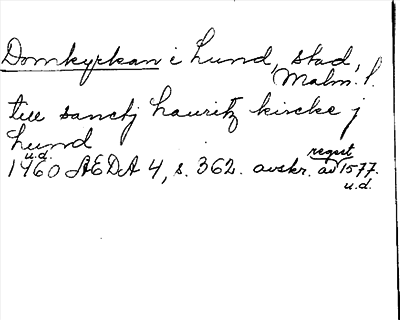 Domkyrkan i Lund, stad,
Malm. l.
till sanctj lauritz kircke j
Lund
u.d.
1460 ÆDA 4, s. 362. avskr. av regist 1577.
u.d.